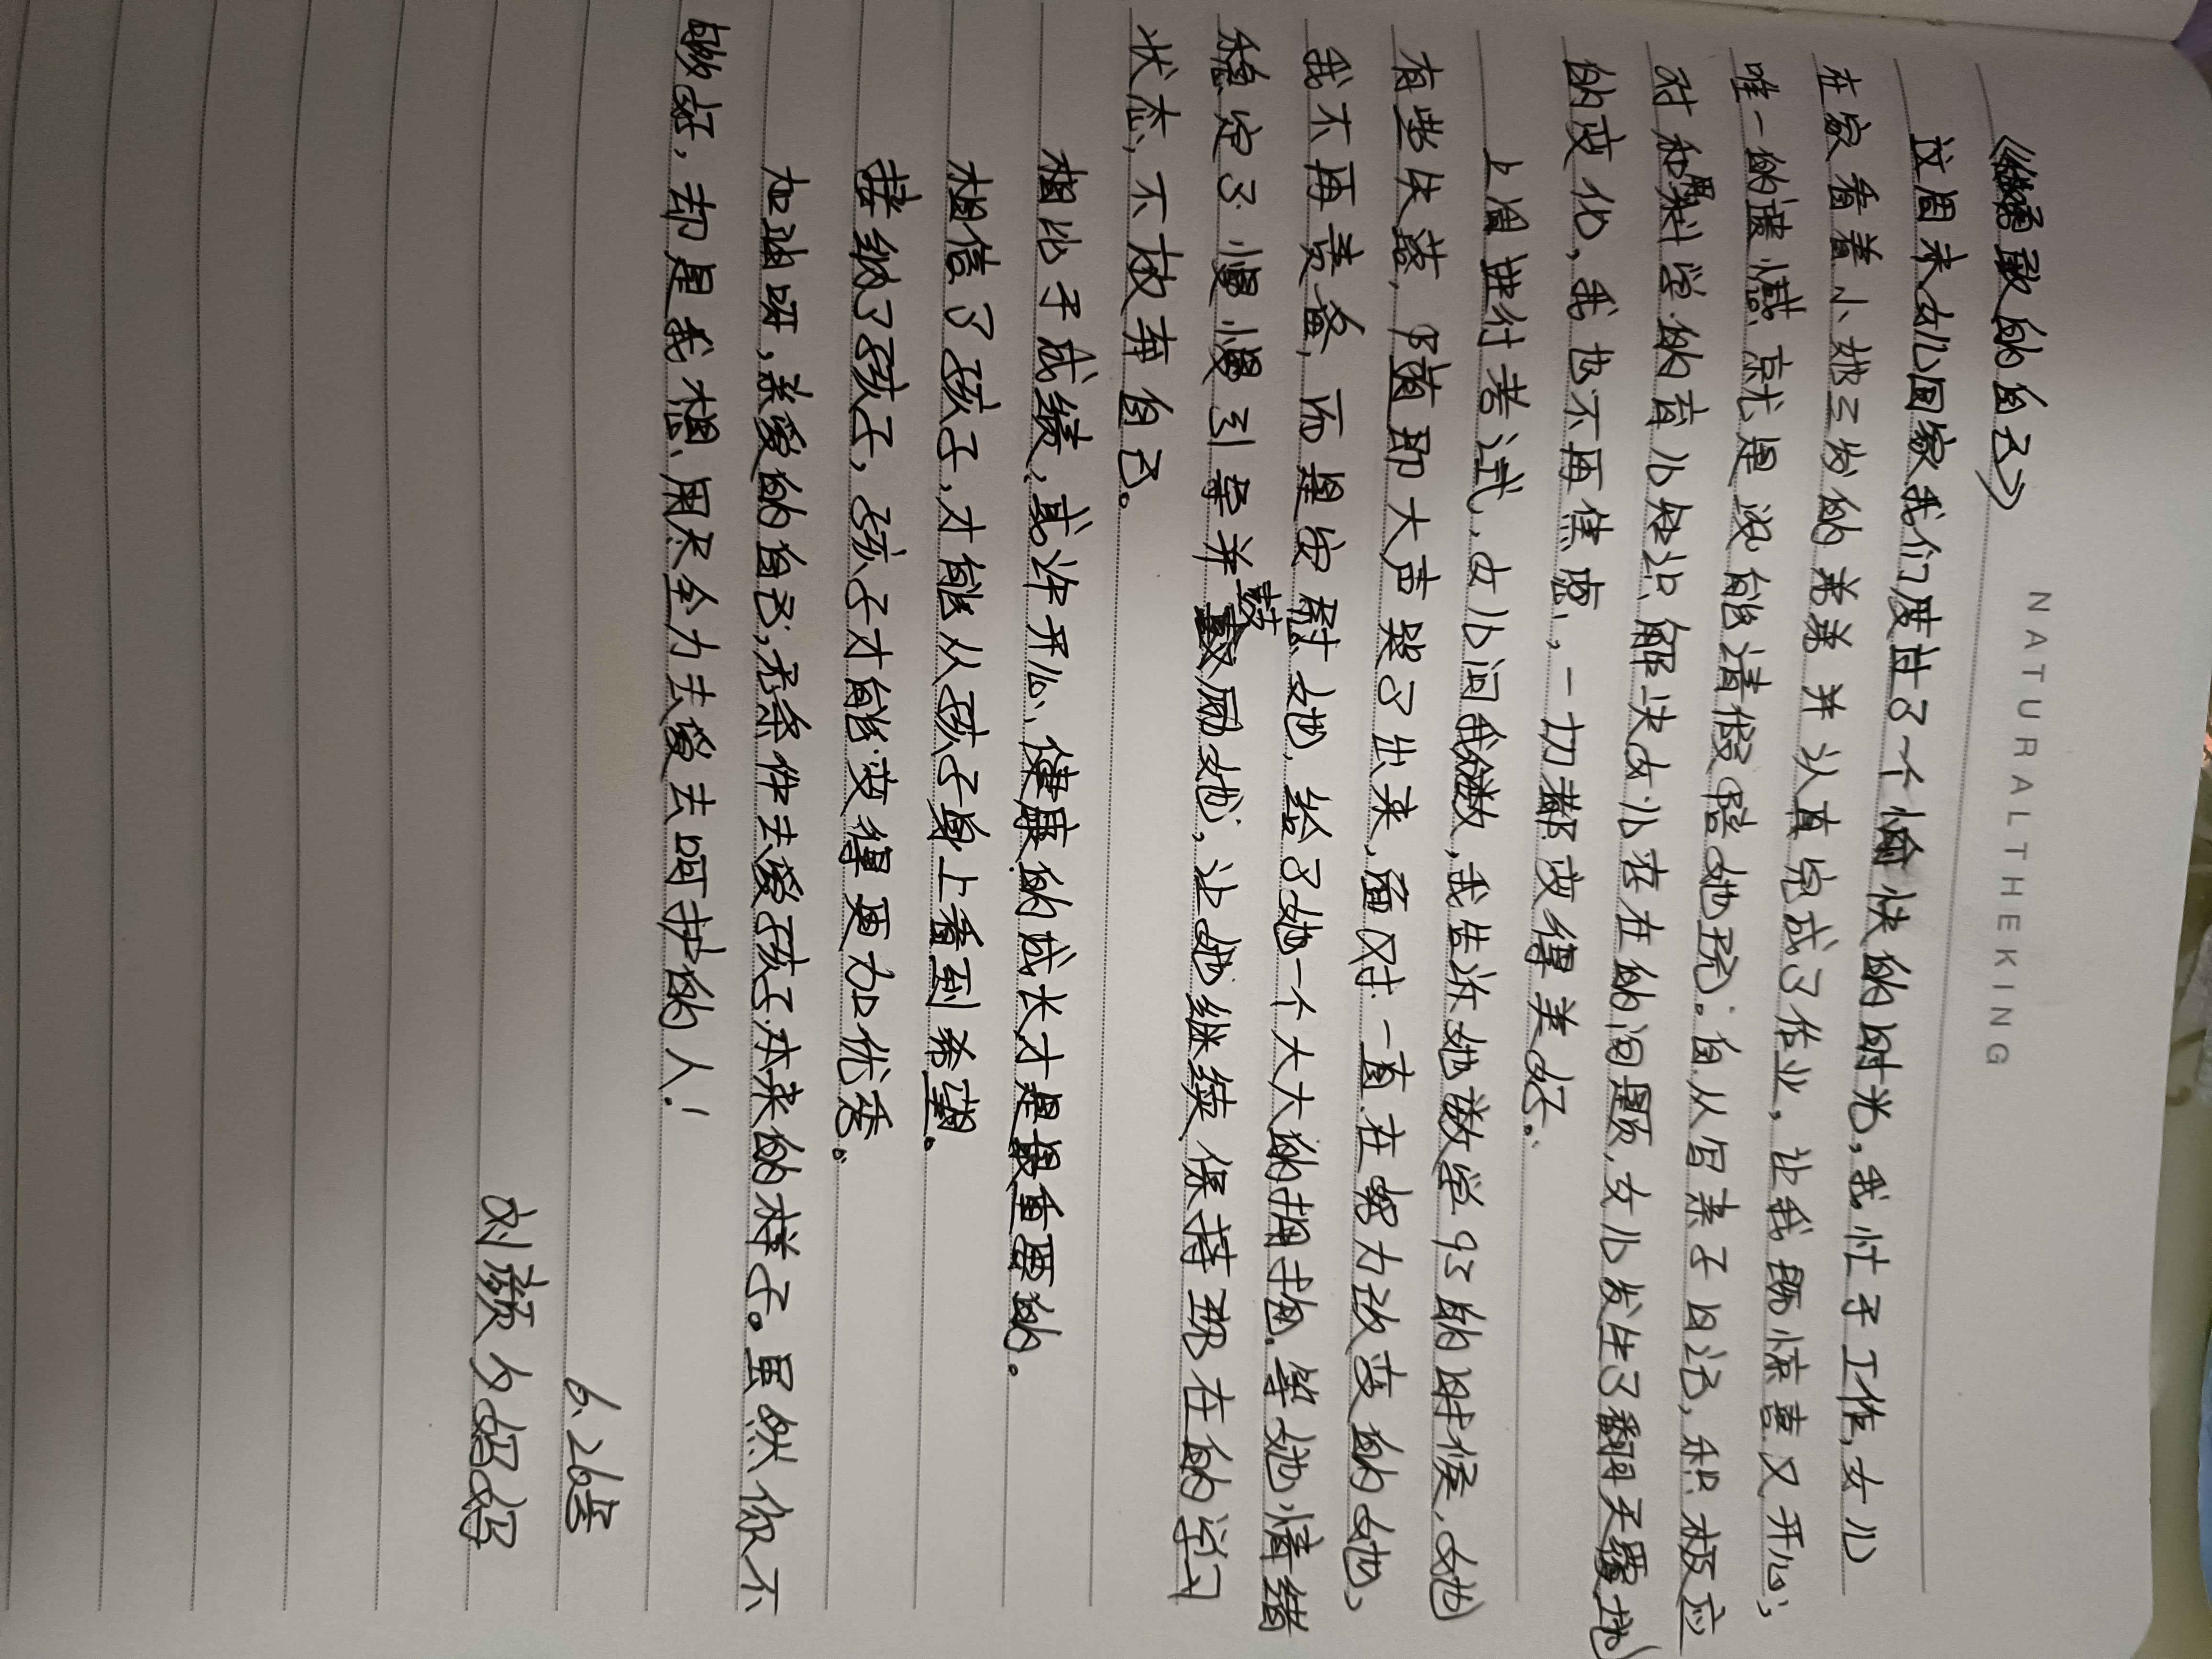 NATURALTHEKING
《做勇敢的自己》
这周末女儿回家我们度过了一个愉快的时光,我忙于工作,女儿
在家看着小她三岁的弟弟并认真完成了作业,让我既惊喜又开心,
唯一的遗憾就是没能请假陪她玩。自从写亲子日记,积极应
对和用科学的育儿知识解决女儿存在的问题,女儿发生了翻天覆地
的变化,我也不再焦虑,一切都变得美好。
上周进行考试,女儿问我分数,我告诉她数学93的时候,她
有些失落,随即大声哭了出来,面对一直在努力改变的她,
我不再责备,而是安慰她,给了她一个大大的拥抱。等她情绪
稳定了慢慢引导并鼓励她,让她继续保持现在的学习
状态,不放弃自己。
相比于成绩,或许开心、健康的成长才是最重要的。
相信了孩子,才能从孩子身上看到希望。
接纳了孩子,孩子才能变得更加优秀。
加油呀,亲爱的自己,无条件去爱孩子本来的样子。虽然你不
够好,却是我想用尽全力去爱去呵护的人!
6.26号
刘颜夕妈妈